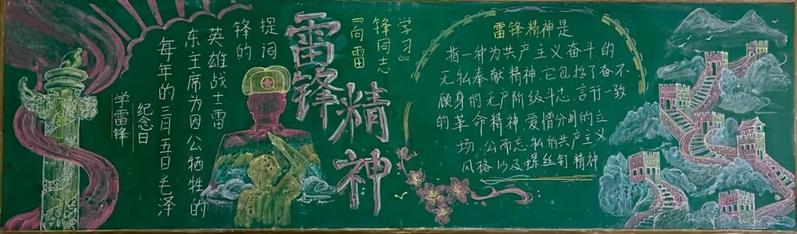 学雷锋
纪念日
每年的三月五日毛泽
东主席为因公牺牲的
英雄战士雷
锋的
提词
『向雷
锋同志
学习』
雷锋
精神
雷锋精神是
指一种为共产主义奋斗的
无私奉献精神,它包括了奋不
顾身的无产阶级斗志,言行一致
的革命精神 爱憎分明的立
场 公而忘私的共产主义
风格以及螺丝钉精神